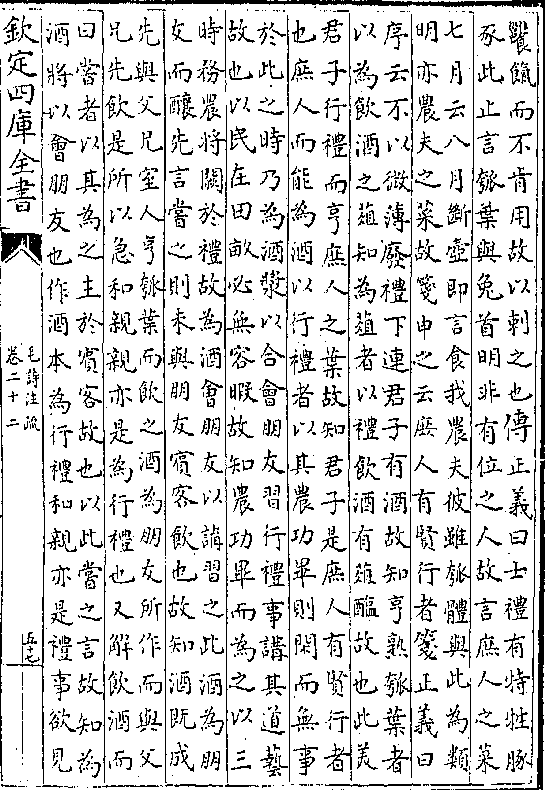 饔餼而不肯用故以刺之也傳正義曰士禮有特牲豚
豕此止言瓠葉與兔首明非有位之人故言庶人之菜
七月云八月斷壺即言食我農夫彼雖瓠體與此為類
明亦農夫之菜故箋申之云庶人有賢行者箋正義曰
序云不以微薄廢禮下連君子有酒故知亨熟瓠葉者
以為飲酒之葅知為葅者以禮飲酒有葅醢故也此美
君子行禮而亨庶人之葉故知君子是庶人有賢行者
也庶人而能為酒以行禮者以其農功畢則閒而無事
於此之時乃為酒漿以合會朋友習行禮事講其道藝
故也以民在田畝必無容暇故知農功畢而為之以三
時務農將闕於禮故為酒會朋友以講習之此酒為朋
友而釀先言嘗之則未與朋友賓客飲也故知酒既成
先與父兄室人亨瓠葉而飲之酒為朋友所作而與父
兄先飲是所以急和親親亦是為行禮也又解飲酒而
曰嘗者以其為之主於賓客故也以此嘗之言故知為
酒將以會朋友也作酒本為行禮和親亦是禮事欲見
欽定四庫全書
毛詩注疏
卷二十二
五十七